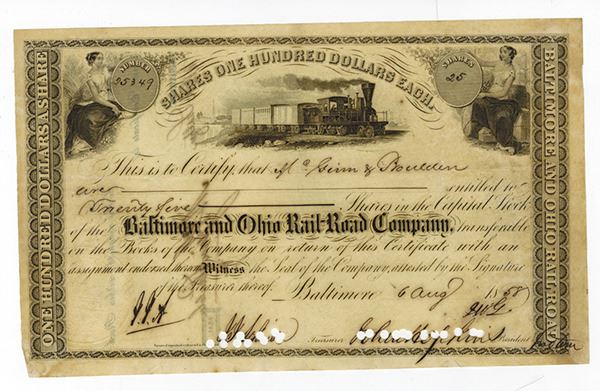 NUMBER
25349
SHARES ONE HUNDRED DOLLARS EACH.
SHARES
25
ONE HUNDRED DOLLARS A SHARE
BALTIMORE AND OHIO RAIL-ROAD
This is to Certify, that McGinn & Boulden
are entitled to
Twenty five Shares in the Capital Stock
of the Baltimore and Ohio Rail-Road Company, transferable
on the Books of the Company on return of this Certificate with an
assignment endorsed thereon Witness the Seal of the Company, attested by the Signature
of the Treasurer thereof. Baltimore 6 Aug 1858
Treasurer
President